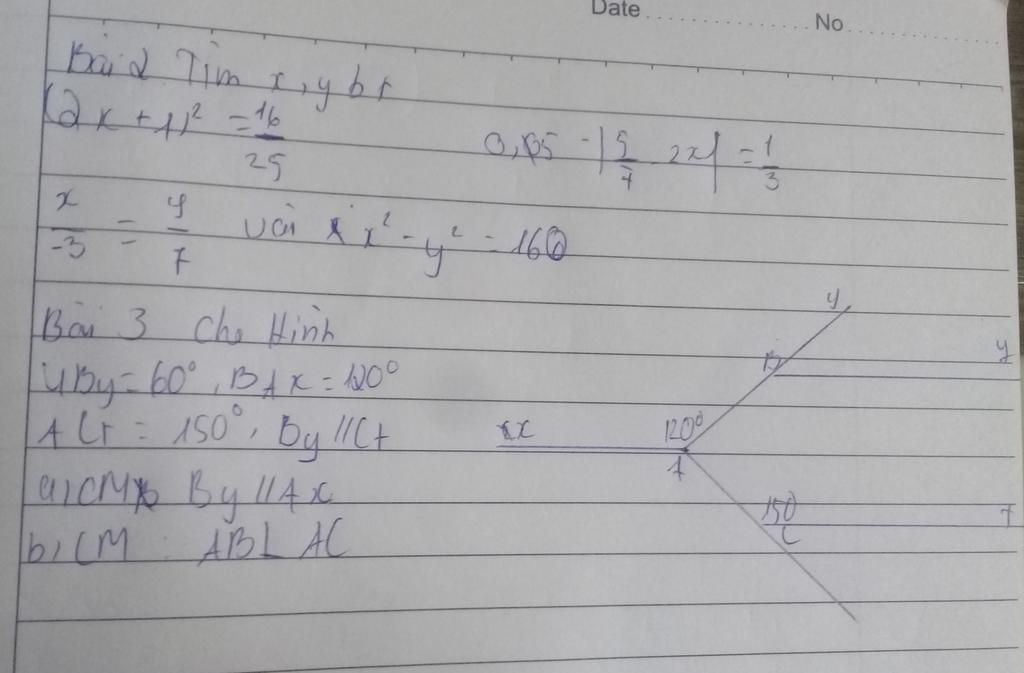 Date No
Bài 2 Tìm x, y bt
(2x + 1)² = 16/25
0,5 - |5/7 2x| = 1/3
x/-3 = y/7 với x² - y² = 160
Bài 3 Cho Hình
yBy = 60°, BAx = 120°
ACt = 150°, By // Ct
a, CM By // Ax
b, CM AB⊥ AC
y
B y
x 120°
A
150 t
C